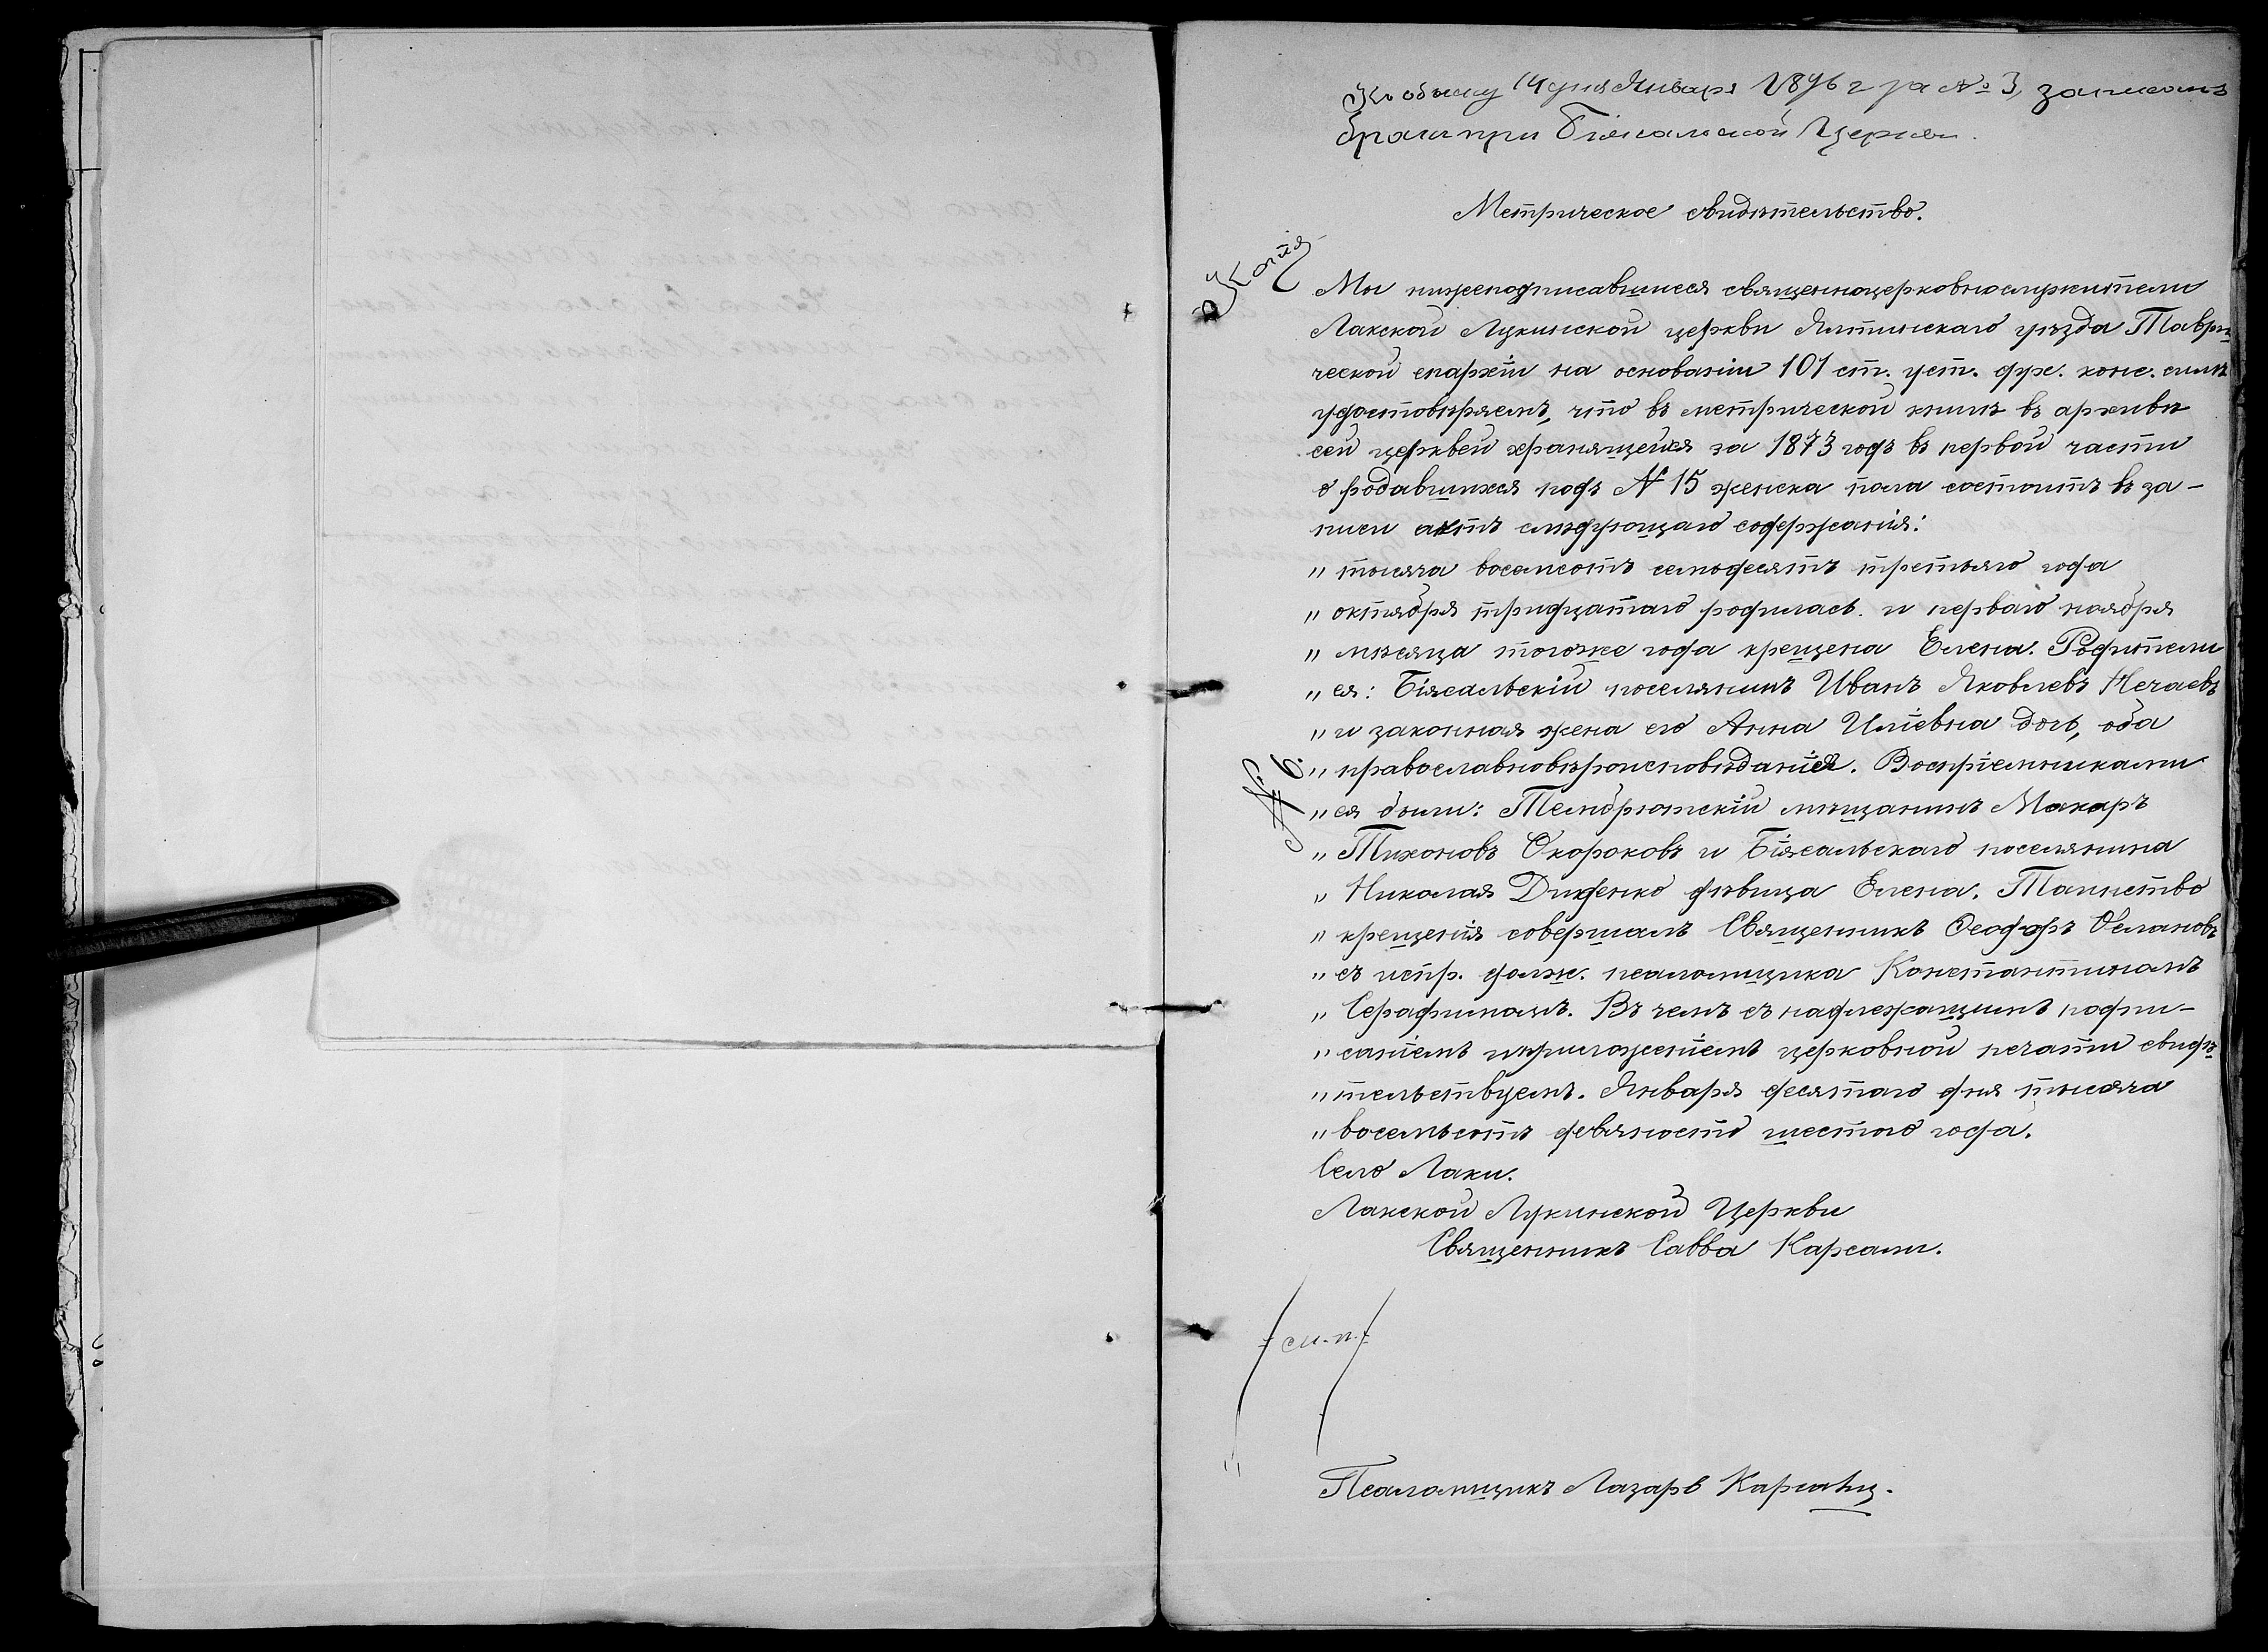 Къ обыску 14 дня Января 1896 г за № 3, записанъ
бракъ при Біясальской Церкви.
Метрическое свидѣтельство.
Копія
Мы нижеподписавшиеся священноцерковнослужители
Лакской Лукинской церкви Ялтинскаго уѣзда Таври
ческой епархіи на основаніи 101 ст. уст. дух. конс. симъ
удостовѣряемъ, что въ метрической книгѣ въ архивѣ
сей церквей хранящейся за 1873 годъ въ первой части
о родавшихся подъ № 15 женска пола состоитъ въ за-
писи актъ слѣдующаго содержанія:
" тысяча восемсотъ семьдесятъ третьяго года
" октября тридцатаго родилась и перваго ноября
" мѣсяца тогоже года крещена Елена. Родители
" ея: Біясальскій поселянинъ Иванъ Яковлевъ Нечаевъ
" и законная жена его Анна Иліевна дочь, оба
" православновѣроисповѣданія. Воспріемниками
" ея были: Темдрютскій мѣщанинъ Макаръ
" Тихоновъ Окороковъ и Біясальскаго поселянина
" Николая Диденко дѣвица Елена. Таинство
" крещенія совершалъ Священникъ Феодоръ
" съ испр. долж. псаломщика Константиномъ
" Серафимомъ. Въ чемъ съ надлежащимъ подпи-
" саніемъ и приложеніемъ церковной печати свидѣ
" тельствуемъ. Января десятаго дня тысяча
" восемьсотъ девяносто шестого года.
Село Лаки.
Лакской Лукинской Церкви
Священникъ Савва
м.п.
Псаломщикъ Лазарь